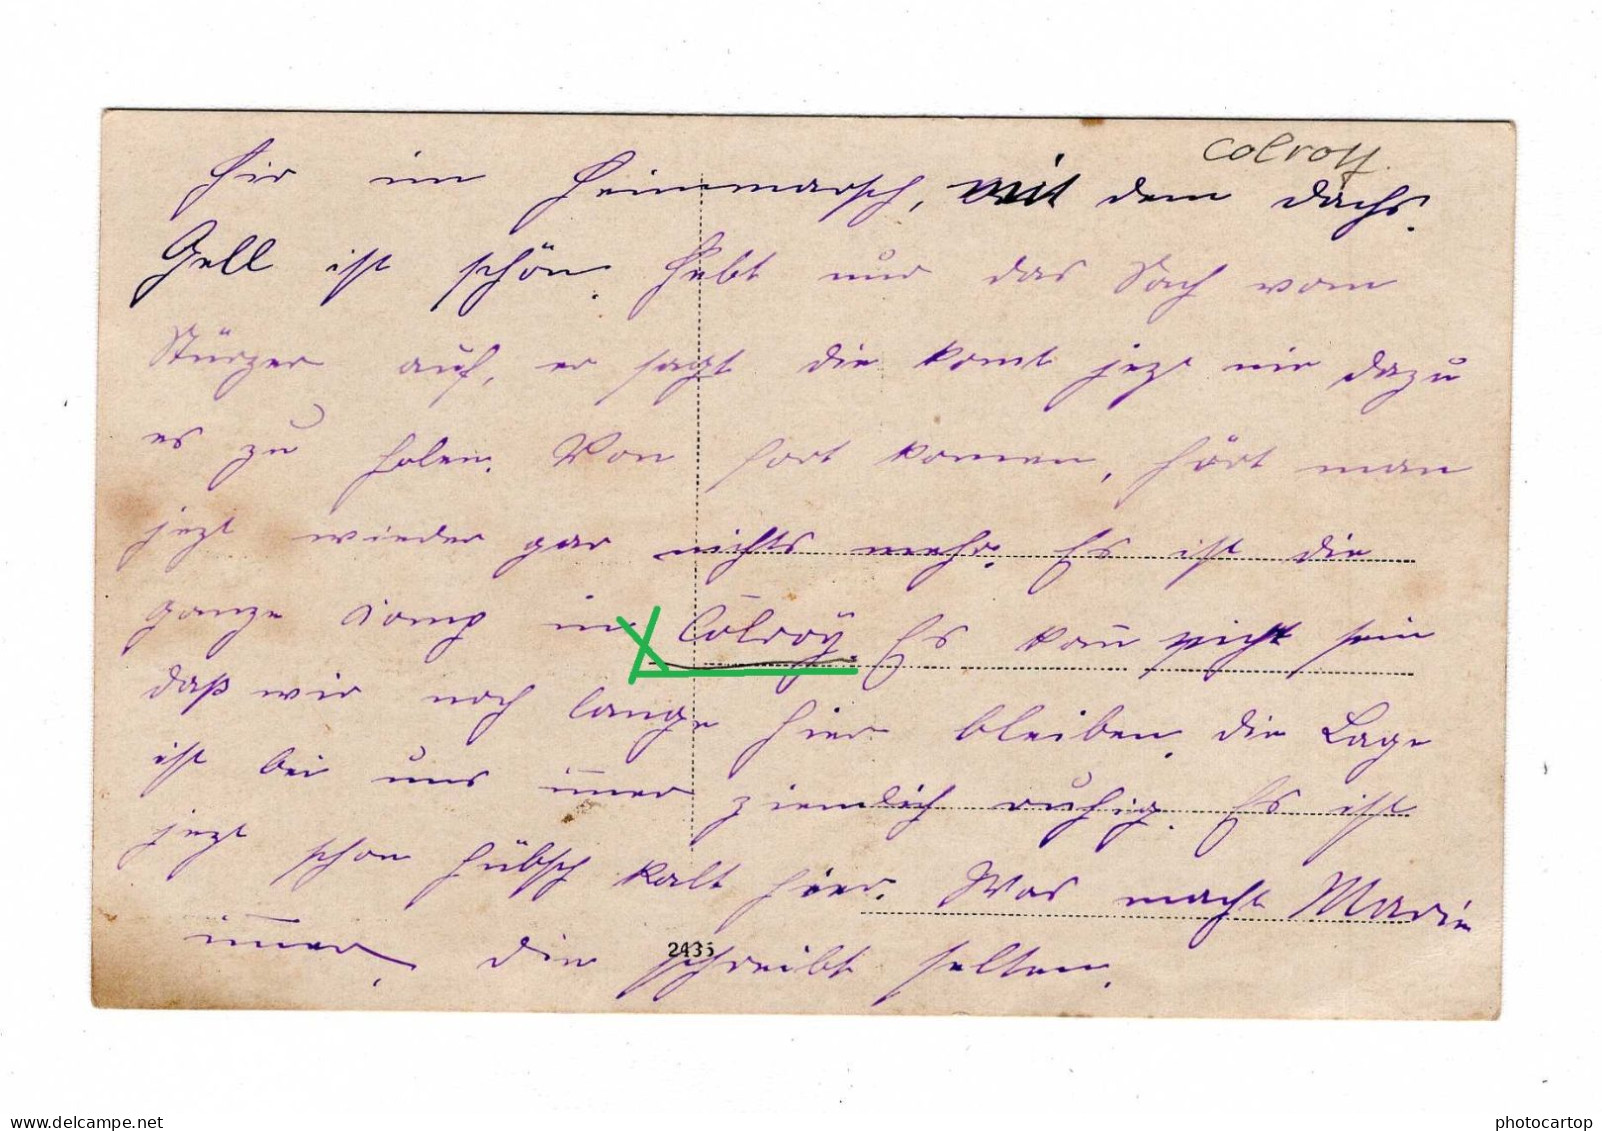 Colroy
Hir im Heimmarsch, mit dem Dachs.
Gell ist schön. Hebt nur das Sach vom
Stürzer auf, er sagt die komt jezt nie dazu
es zu holen. Von fort komen, hört man
jezt wieder gar nichts mehr. Es ist die
ganze Komp in Colroÿ. Es kan̄ nicht sein
daß wir noch lange hier bleiben, die Lage
ist bei uns im̄er ziemlich ruhig. Es ist
jezt schon hübsch kalt hier. Was macht Marie
im̄er, die schreibt selten.
2435
https://www.delcampe.net
photocartop